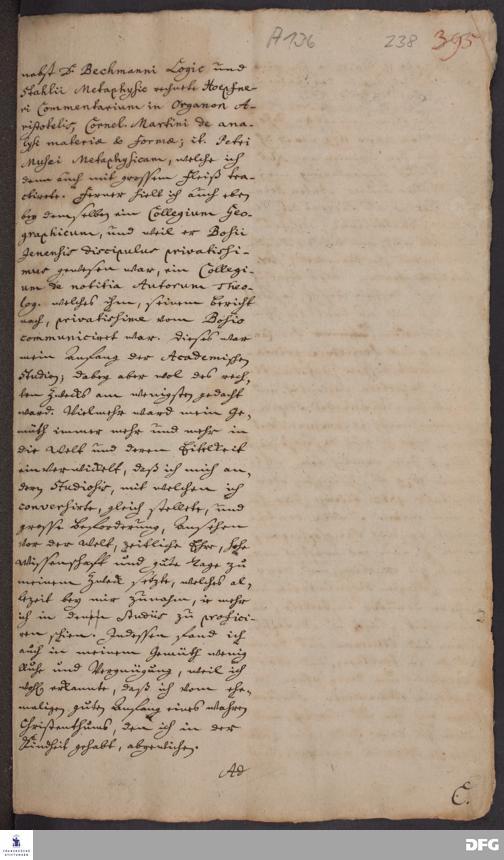 A 136 238 395
nebst D. Bechmanni Logic und
Stahlii Metaphysic rechnete Hoepfne-
ri Commentarium in Organon A-
ristotelis, Cornel. Martini de ana-
lysi materiæ & formæ; it. Petri
Musæi Metaphysicam, welche ich
denn auch mit grossem Fleiß tra-
ctirete. Ferner hielt ich auch eben
bey demselben ein Collegium Geo-
graphicum, und weil er Bosii
Jenensis discipulus privatissi-
mus gewesen war, ein Collegi-
um de notitia Autorum Theo-
log. welches ihm, seinem Bericht
nach, privatissime vom Bosio
communiciret war. Dieses war
mein Anfang der Academischen
Studien; dabey aber wol des rech-
ten Zwecks am wenigsten gedacht
ward. Vielmehr ward mein Ge-
müth immer mehr und mehr in
die Welt und deren Eitelkeit
einverwickelt, daß ich mich an-
dern Studiosis, mit welchen ich
conversirte, gleich stellete, und
grosse Beförderung, Ansehen
vor der Welt, zeitliche Ehre, hohe
Wissenschaft und gute Tage zu
meinem Zweck setzte, welches al-
lezeit bey mir zunahm, ie mehr
ich in denen Studiis zu profici-
ren schien. Indessen fand ich
auch in meinem Gemüth wenig
Ruhe und Vergnügung, weil ich
wohl erkannte, daß ich vom ehe-
maligen guten Anfang eines wahren
Christenthums, den ich in der
Kindheit gehabt, abgewichen.
Ad
C.
FRANCKESCHE
STIFTUNGEN
DFG